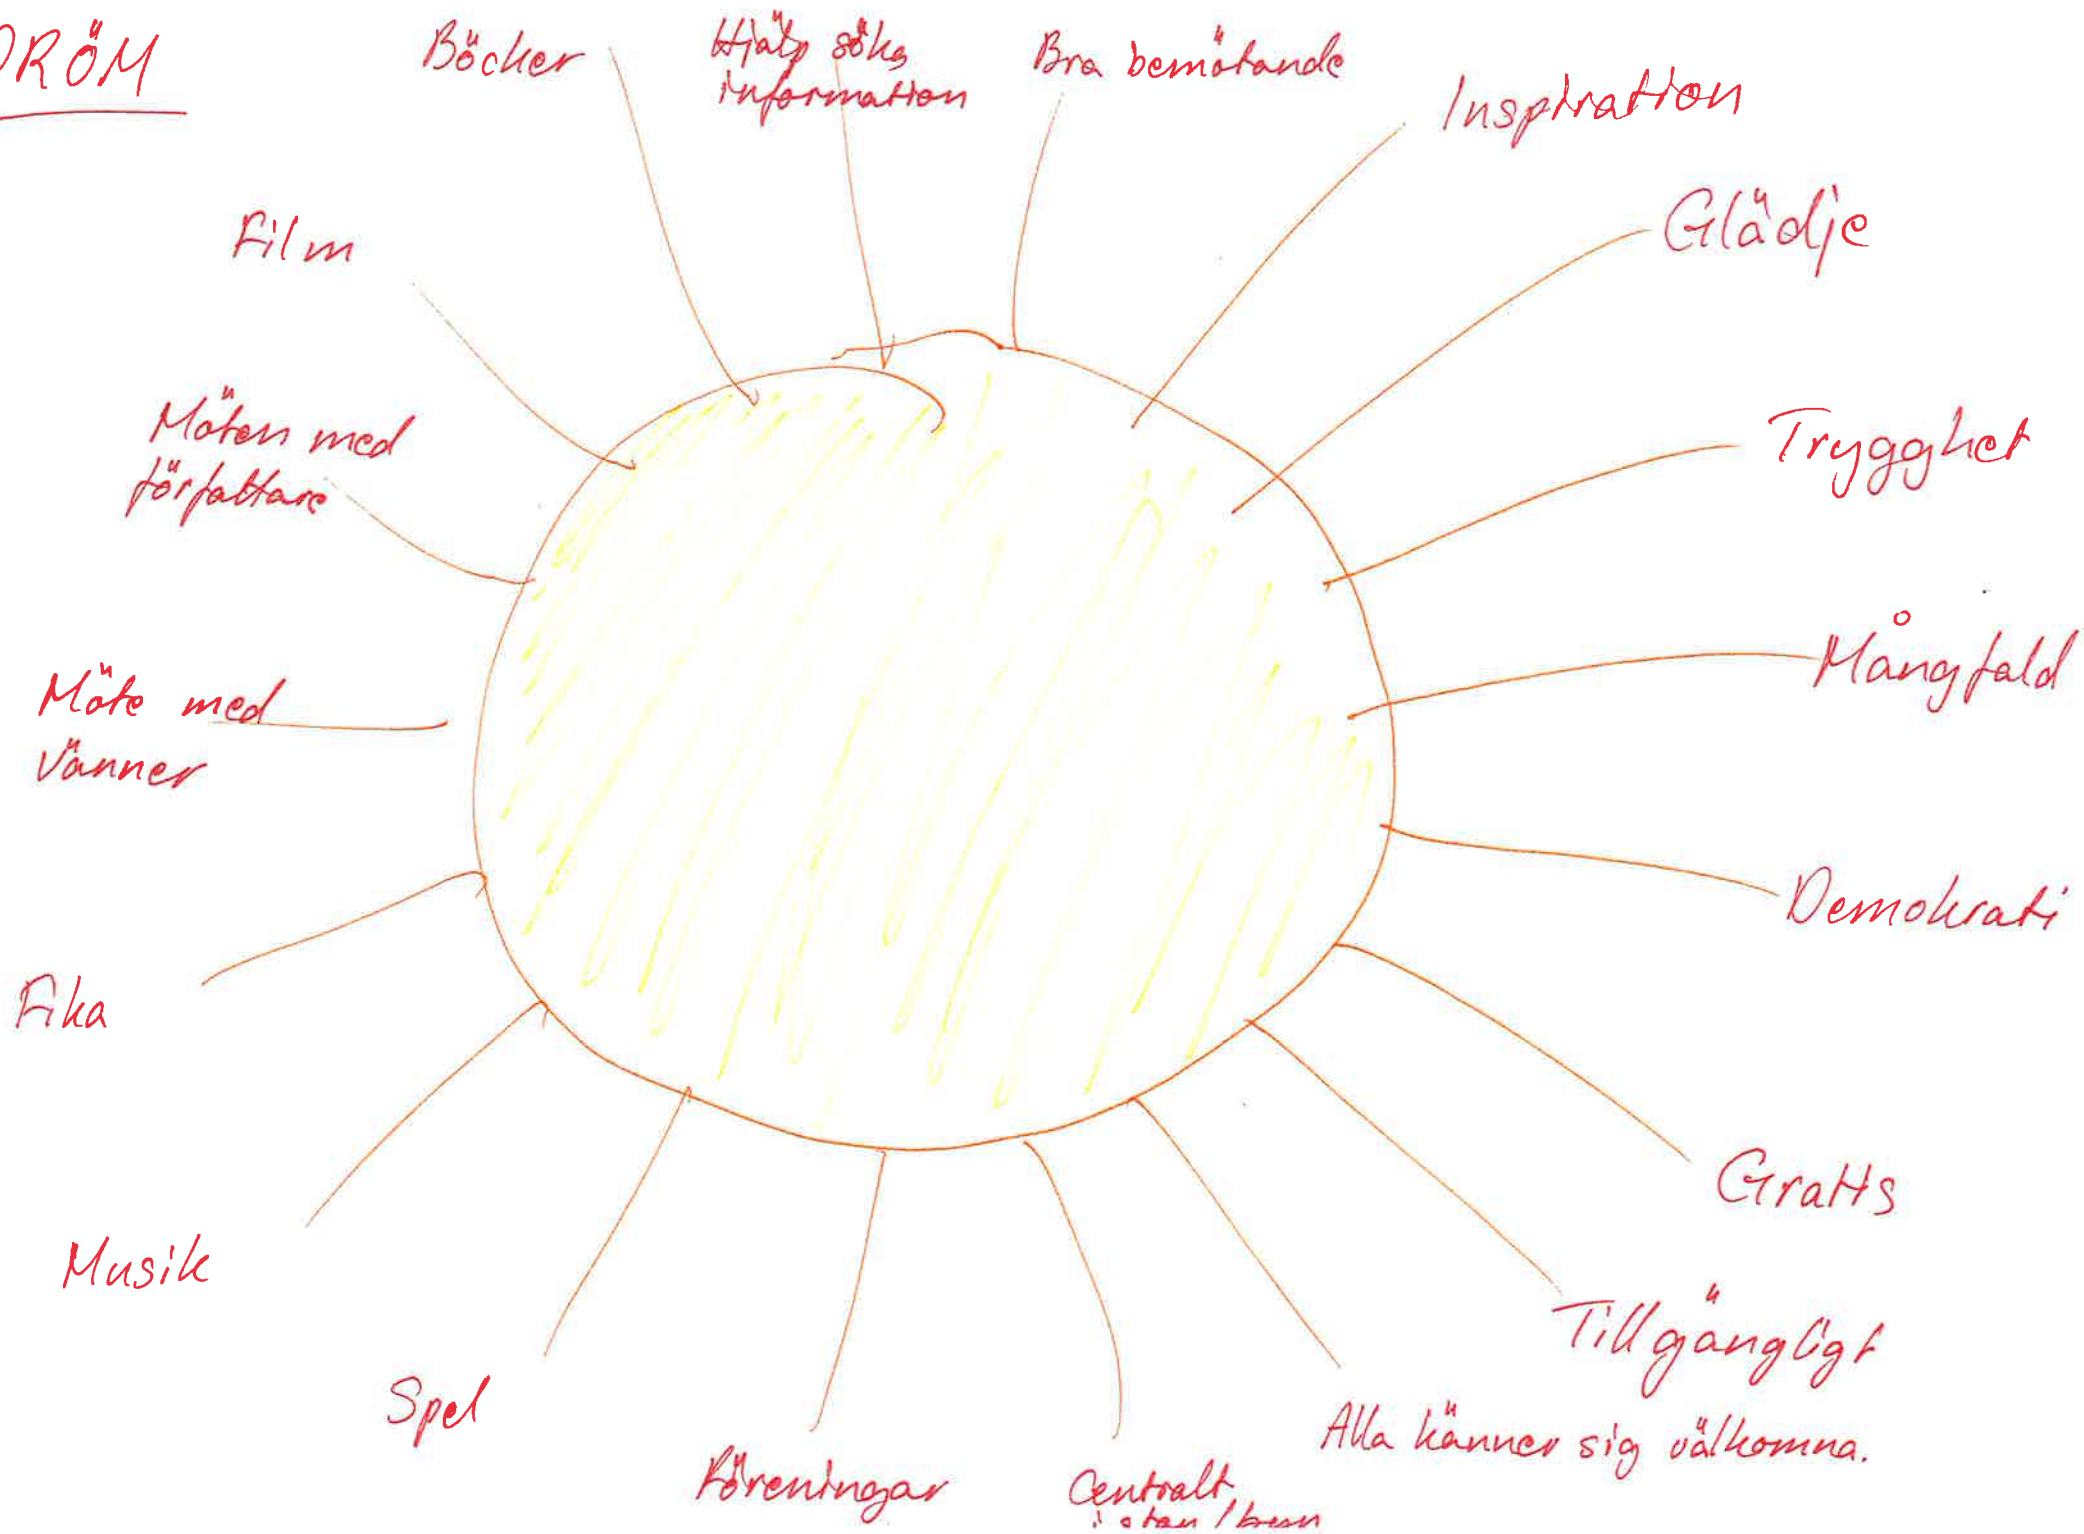 DRÖM
Böcker
Hjälp söka
information
Bra bemötande
Inspiration
Glädje
Trygghet
Mångfald
Demokrati
Gratis
Tillgängligt
Alla känner sig välkomna.
Centralt
Föreningar
Spel
Musik
Fika
Möte med
vänner
Möten med
författare
Film